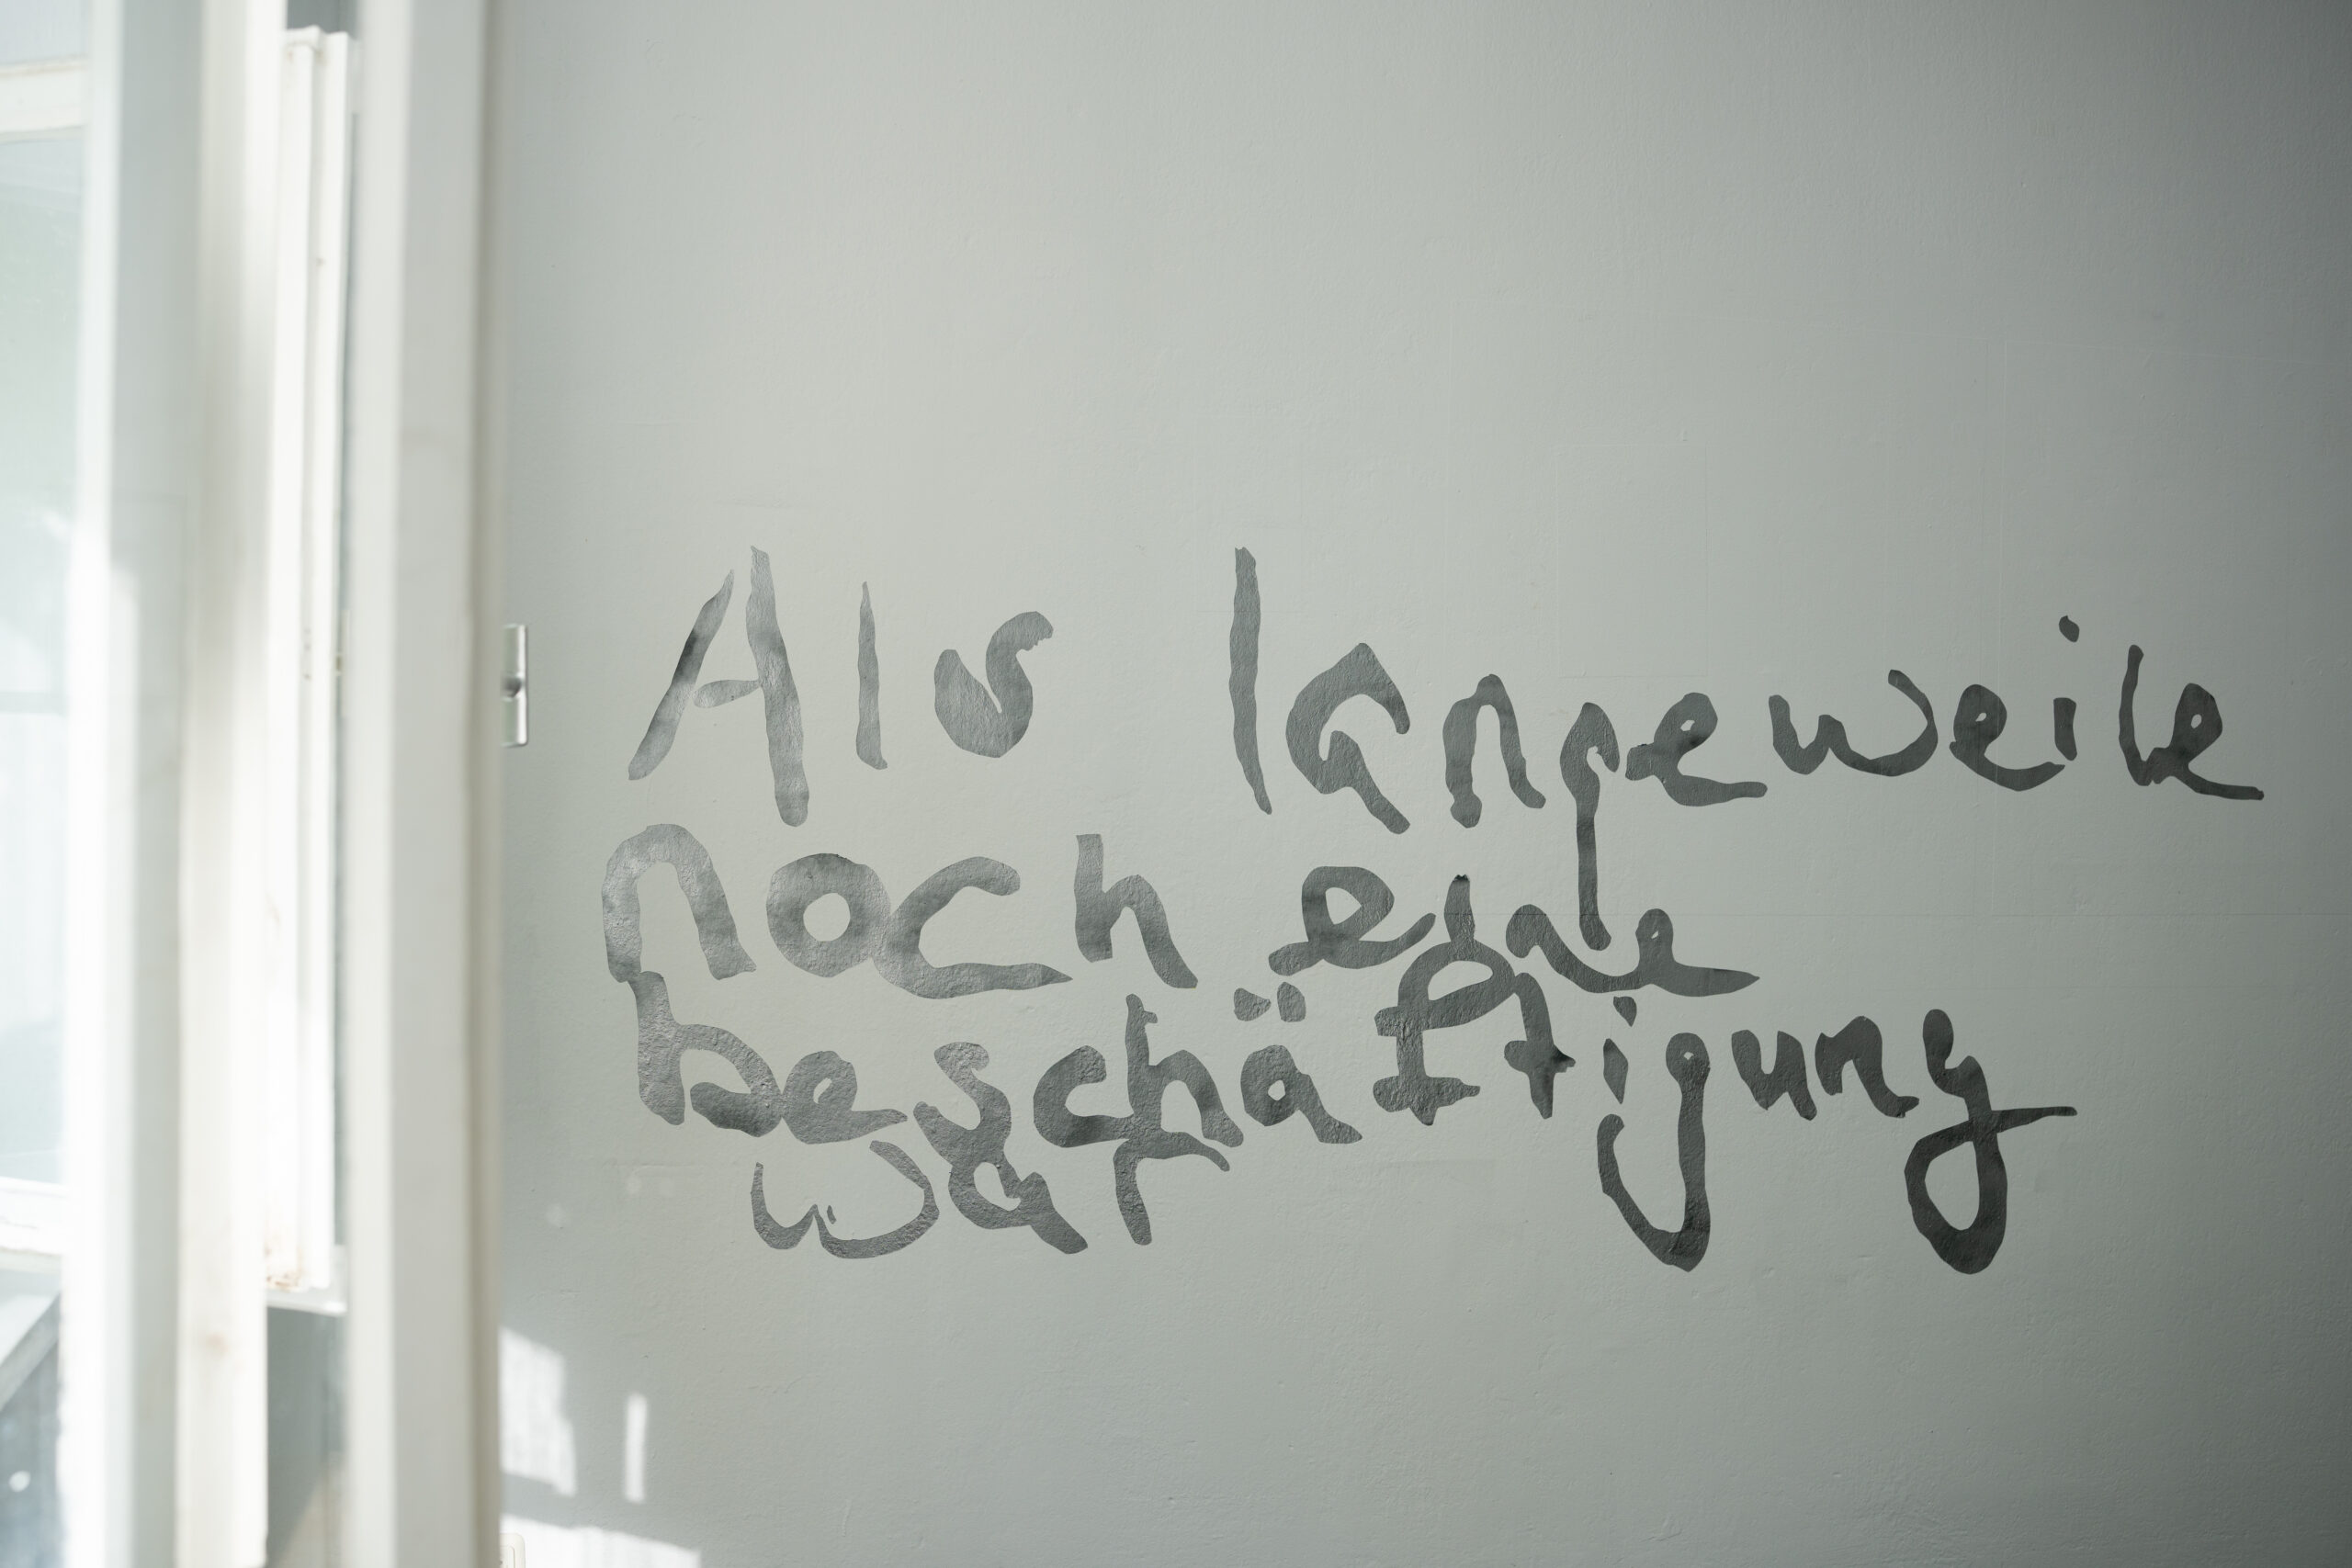 Als langeweile
noch eine
beschäftigung
war